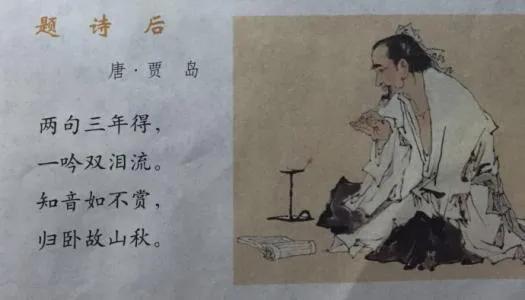 题诗后
唐·贾岛
两句三年得，
一吟双泪流。
知音如不赏，
归卧故山秋。